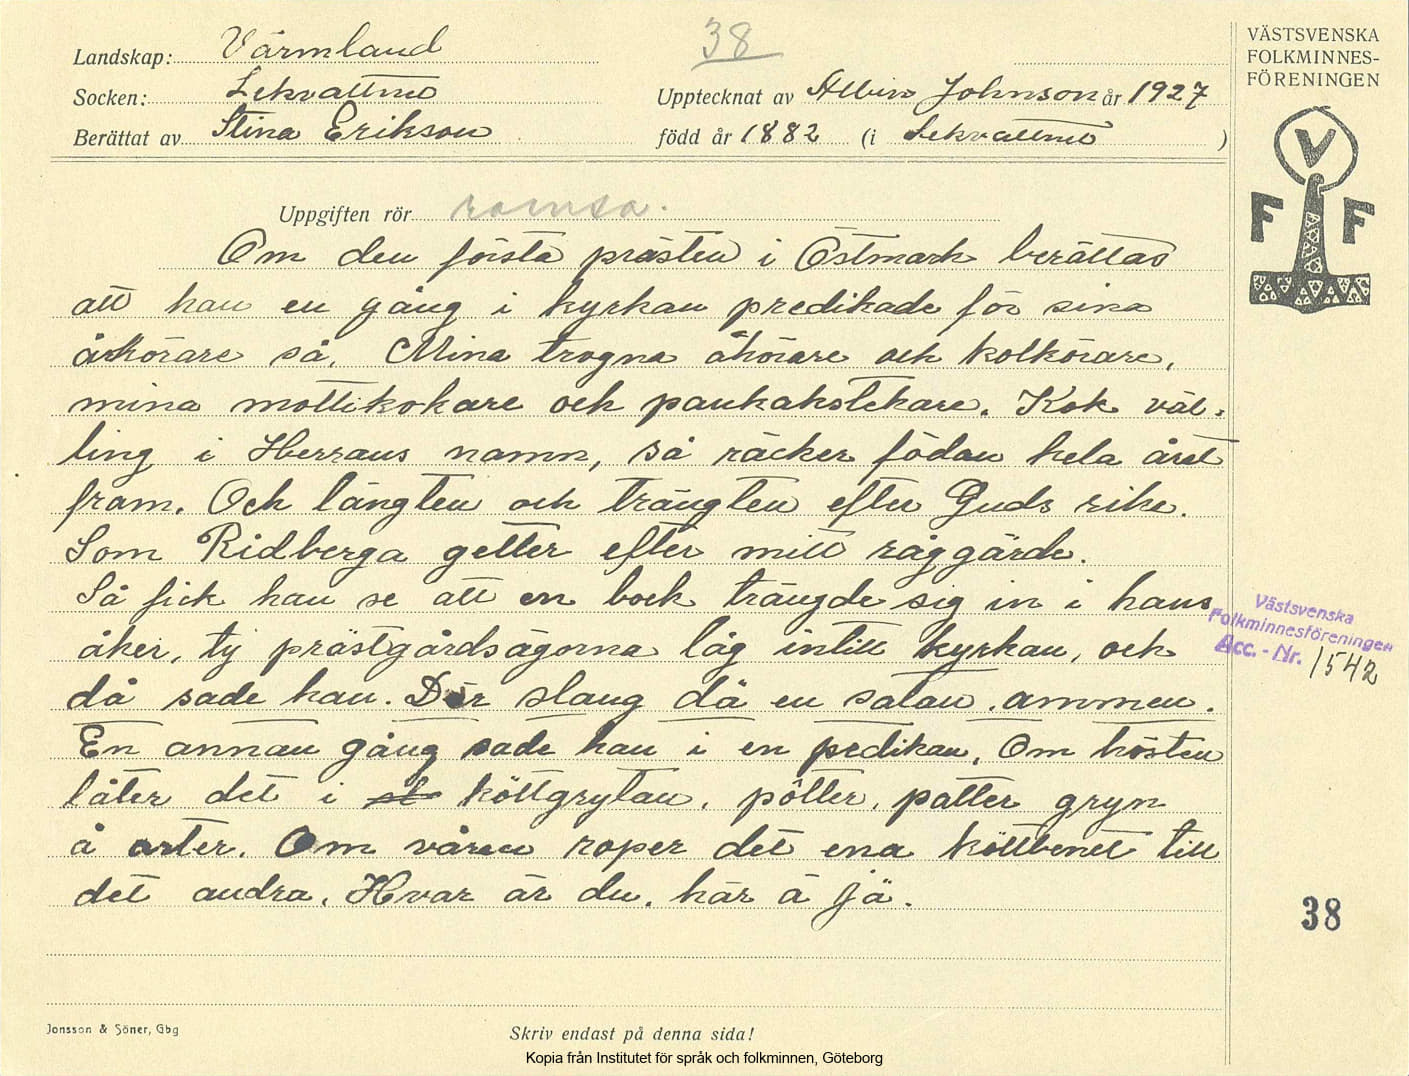 Landskap: Värmland
38
VÄSTSVENSKA
FOLKMINNES-
FÖRENINGEN
Socken: Lekvattnet
Upptecknat av Albin Johnson år 1927
Berättat av Stina Erikson
född år 1882 (i Lekvattnet )
V
F F
Uppgiften rör ramsa.
Om den första prästen i Östmark berättas
att han en gång i kyrkan predikade för sina
åhörare så. Mina trogna åhörare och kolkörare,
mina mottikokare och pankakstekare. Kok väl-
ling i Herrans namn, så räcker födan hela året
fram. Och längten och trängten efter Guds rike.
Som Ridberga getter efter mitt råggärde.
Så fick han se att en bock trängde sig in i hans
åker, ty prästgårdsägorna låg intill kyrkan, och
då sade han. Där slang dä en satan. ammen.
En annan gång sade han i en pedikan, Om hösten
låter det i köttgrytan, pôtter, patter gryn
å ärter. Om våren roper det ena köttbenet till
det andra. Hvar är du. här ä jä.
Västsvenska
Folkminnesföreningen
Acc. - Nr. 1542
38
Jonsson & Söner, Gbg
Skriv endast på denna sida!
Kopia från Institutet för språk och folkminnen, Göteborg